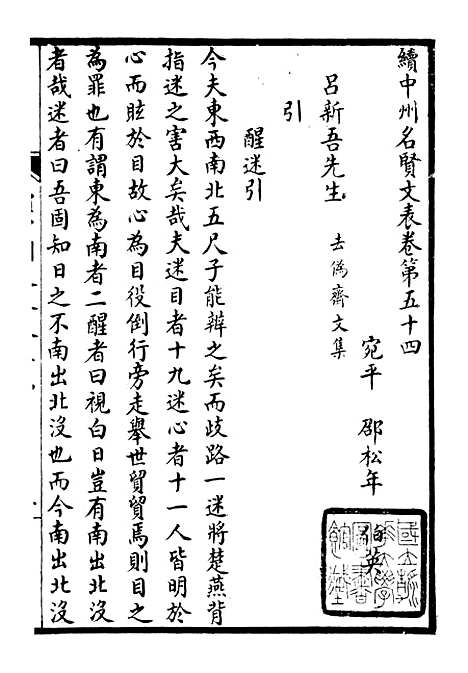 續中州名賢文表卷第五十四
宛平 邵松年 伯英
呂新吾先生 去偽齋文集
引
醒迷引
今夫東西南北五尺子能辨之矣而歧路一迷將楚燕背
指迷之害大矣哉夫迷目者十九迷心者十一人皆明於
心而眩於目故心為目役倒行旁走舉世貿貿焉則目之
為罪也有謂東為南者二醒者曰視白日豈有南出北沒
者哉迷者曰吾固知日之不南出北沒也而今南出北沒